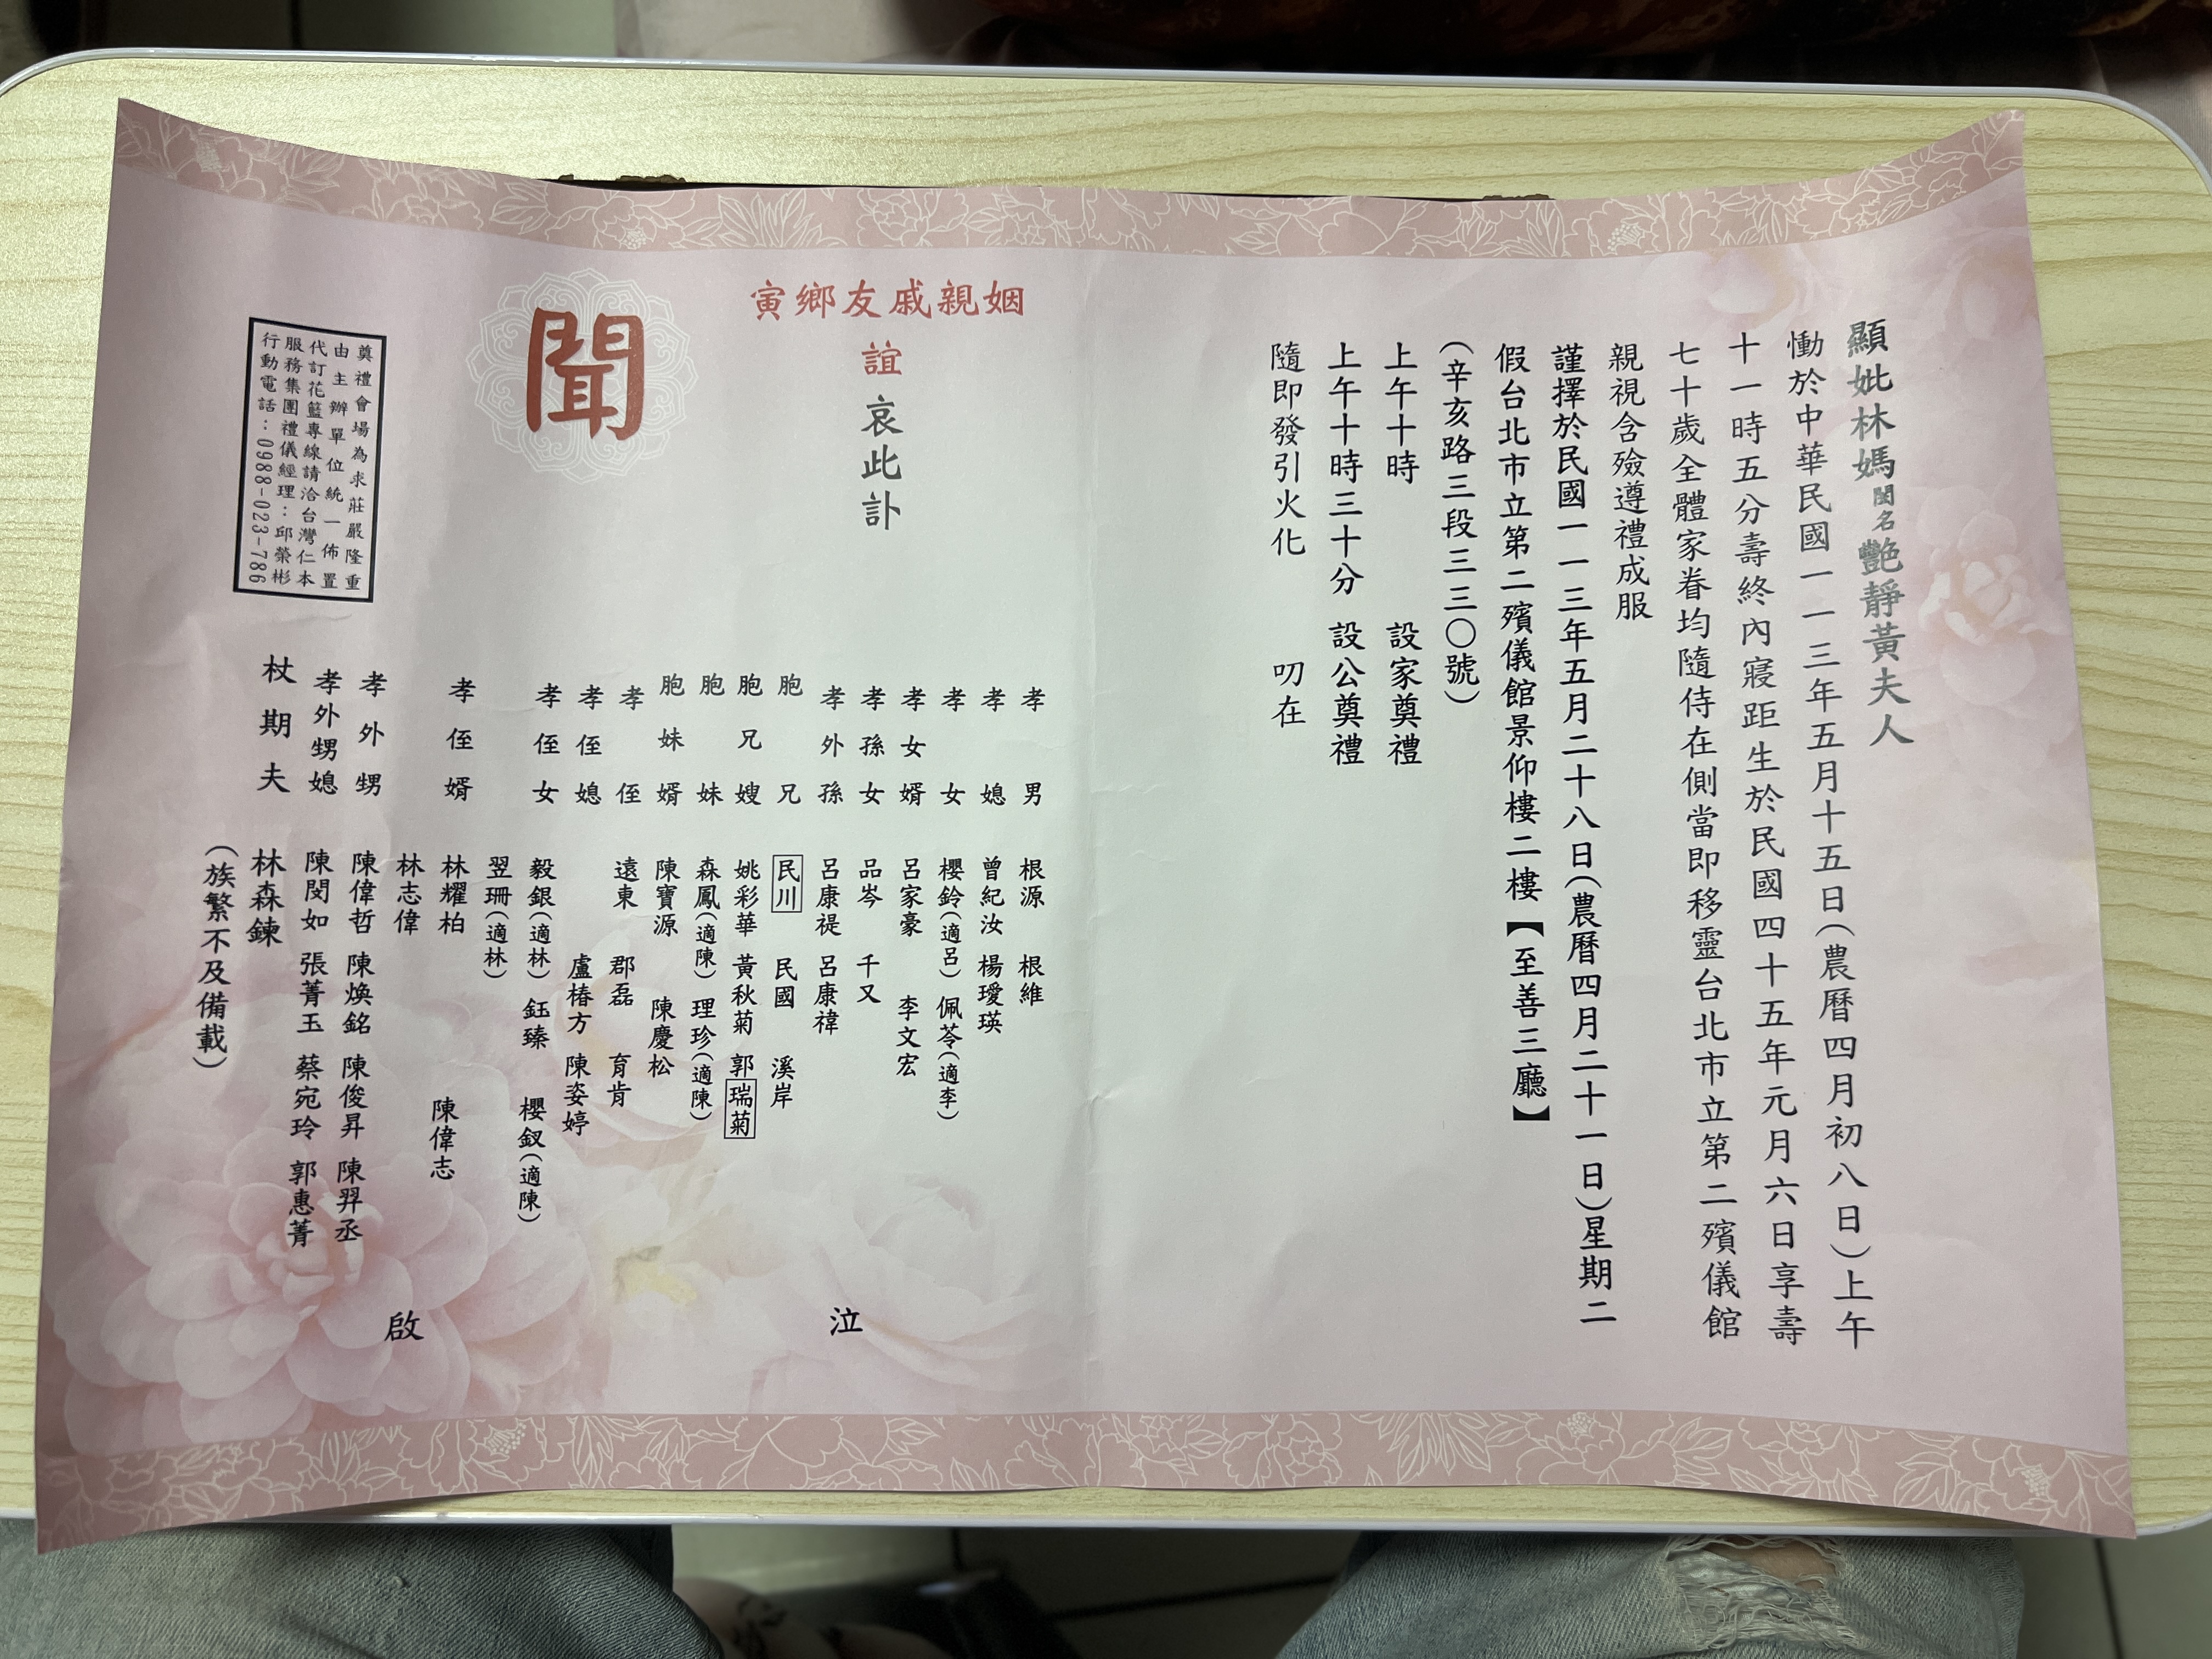 顯妣林媽閨名艷靜黃夫人
慟於中華民國一一三年五月十五日(農曆四月初八日)上午
十一時五分壽終內寢距生於民國四十五年元月六日享壽
七十歲全體家眷均隨侍在側當即移靈台北市立第二殯儀館
親視含殮遵禮成服
謹擇於民國一一三年五月二十八日(農曆四月二十一日)星期二
假台北市立第二殯儀館景仰樓二樓【至善三廳】
(辛亥路三段三三〇號)
上午十時 設家奠禮
上午十時三十分 設公奠禮
隨即發引火化 叨在
姻親戚友鄉寅
誼哀此訃
聞
孝男 根源 根維
孝媳 曾紀汝 楊璦瑛
孝女 櫻鈴(適呂) 佩苓(適李)
孝女婿 呂家豪 李文宏
孝孫女 品岑 千又
孝外孫 呂康禔 呂康禕
胞兄 民川 民國 溪岸
胞兄嫂 姚彩華 黃秋菊 郭瑞菊
胞妹 森鳳(適陳) 理珍(適陳)
胞妹婿 陳寶源 陳慶松
孝侄 遠東 郡磊 育肯
孝侄媳 盧椿方 陳姿婷
孝侄女 毅銀(適林) 鈺臻 櫻釵(適陳)
翌珊(適林)
孝侄婿 林耀柏 陳偉志
林志偉
孝外甥 陳偉哲 陳煥銘 陳俊昇 陳羿丞
孝外甥媳 陳閔如 張菁玉 蔡宛玲 郭惠菁
杖期夫 林森鍊
(族繁不及備載)
泣
啟
奠禮會場為求莊嚴隆重
由主辦單位統一佈置
代訂花籃專線請洽台灣仁本
服務集團禮儀經理：邱榮彬
行動電話：0988-023-786